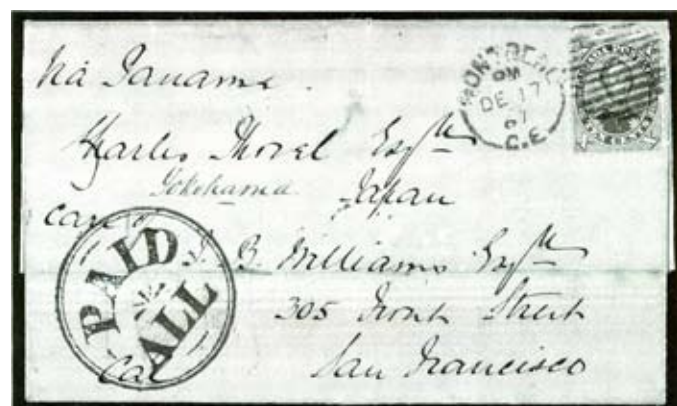 Via Panama.
MONTREAL
PM
DE 17
67
C.E.
Charles Thorel Esqre
Yokohama Japan
care of
J. B. Williams Esqre
305 Front Street
San Francisco
Cal
PAID
ALL